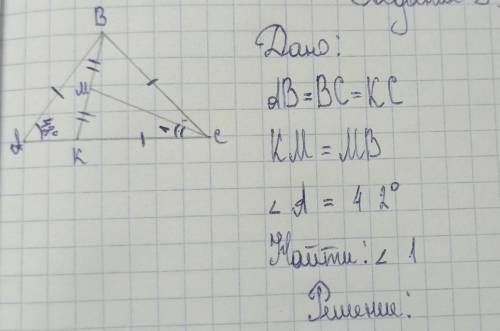 B
M
A
K
C
Дано:
AB = BC = KC
KM = MB
∠A = 42°
Найти: ∠ 1
Решение: